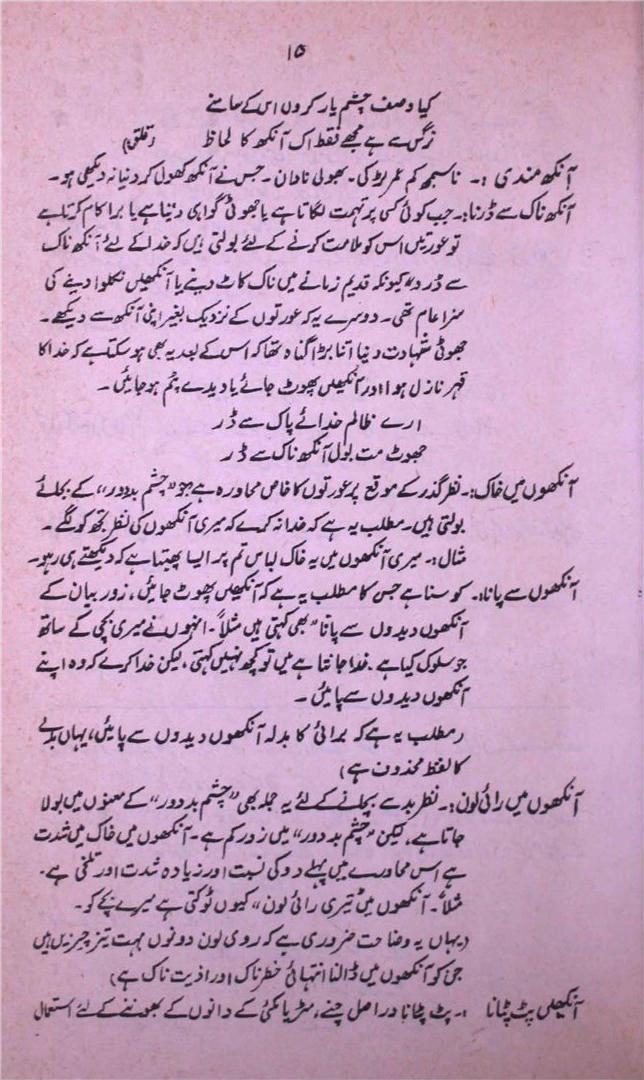 ۱۵
کیا وصف چشم یار کروں اس کے سامنے
نرگس سے ہے مجھے فقط اک آنکھ کا لحاظ (قلق)
آنکھ مندی :۔ ناسمجھ کم عمر لڑکی۔ بھولی نادان۔ جس نے آنکھ کھول کر دنیا نہ دیکھی ہو۔
آنکھ ناک سے ڈرنا:۔ جب کوئی کسی پر تہمت لگاتا ہے یا جھوٹی گواہی دیتا ہے یا برا کام کرتا ہے
تو عورتیں اس کو ملامت کرنے کے لئے بولتی ہیں کہ خدا کے لئے آنکھ ناک
سے ڈرو" کیونکہ قدیم زمانے میں ناک کاٹ دینے یا آنکھیں نکلوا دینے کی
سزا عام تھی۔ دوسرے یہ کہ عورتوں کے نزدیک بغیر اپنی آنکھ سے دیکھے۔
جھوٹی شہادت دینا اتنا بڑا گناہ تھا کہ اس کے بعد یہ بھی ہو سکتا ہے کہ خدا کا
قہر نازل ہو اور آنکھیں پھوٹ جائے یا دیدے پٹم ہو جائیں۔
ارے ظالم خدائے پاک سے ڈر
جھوٹ مت بول آنکھ ناک سے ڈر
آنکھوں میں خاک:۔ نظر گذر کے موقع پر عورتوں کا خاص محاورہ ہے جو "چشم بد دور" کے بجائے
بولتی ہیں۔ مطلب یہ ہے کہ خدا نہ کرے کہ میری آنکھوں کی نظر تجھ کو لگے۔
مثال:۔ میری آنکھوں میں یہ خاک لباس تم پر ایسا پھبتا ہے کہ دیکھتے ہی رہو۔
آنکھوں سے پانا:۔ کوسنا ہے جس کا مطلب یہ ہے کہ آنکھیں پھوٹ جائیں، زور بیان کے
آنکھوں دیدوں سے پانا" بھی کہتی ہیں مثلاً۔ انہوں نے میری بچی کے ساتھ
جو سلوک کیا ہے۔ خدا جانتا ہے میں تو کچھ نہیں کہتی، لیکن خدا کرے کہ وہ اپنے
آنکھوں دیدوں سے پائیں۔
(مطلب یہ ہے کہ برائی کا بدلہ آنکھوں دیدوں سے پائیں، یہاں بدلے
کا لفظ محذوف ہے)
آنکھوں میں رائی لون:۔ نظر بد سے بچانے کے لئے یہ جملہ بھی "چشم بد دور" کے معنوں میں بولا
جاتا ہے، لیکن "چشم بد دور" میں زور کم ہے۔ آنکھوں میں خاک میں شدت
ہے اس محاورے میں پہلے دو کی نسبت اور زیادہ شدت اور تلخی ہے۔
مثلاً۔ آنکھوں میں تیری رائی لون" کیوں ٹوکتی ہے میرے بچے کو۔
(یہاں یہ وضاحت ضروری ہے کہ روی لون دونوں بہت تیز چیزیں ہیں
جن کو آنکھوں میں ڈالنا انتہائی خطرناک اور اذیت ناک ہے)
آنکھیں پٹ پٹانا :۔ پٹ پٹانا دراصل چنے، مٹر یا مکئی کے دانوں کے بھوننے کے لئے استعمال